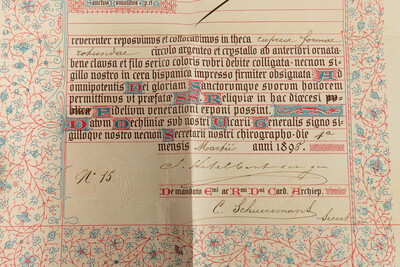 Sanctus Romoaldus p.et
reverenter reposuimus et collocavimus in theca cuprea formae
rotundae circulo argenteo et crystallo ab anteriori ornata
bene clausa et filo serico coloris rubri debite colligata necnon si
gillo nostro in cera hispanica impresso firmiter obsignata Ad
omnipotentis Dei gloriam Sanctorumque suorum honorem
permittimus ut praefatae SS. Reliquiae in hac dioecesi pu
blicae Fidelium venerationi exponi possint
Datum Mechliniae sub nostri Vicarii Generalis signo si
gilloque nostro necnon Secretarii nostri chirographo die 4a
mensis Martii anni 1898.
N° 15
De mandato Emi ac Rmi Dni Card. Archiep.
C. Schueremans
Secret